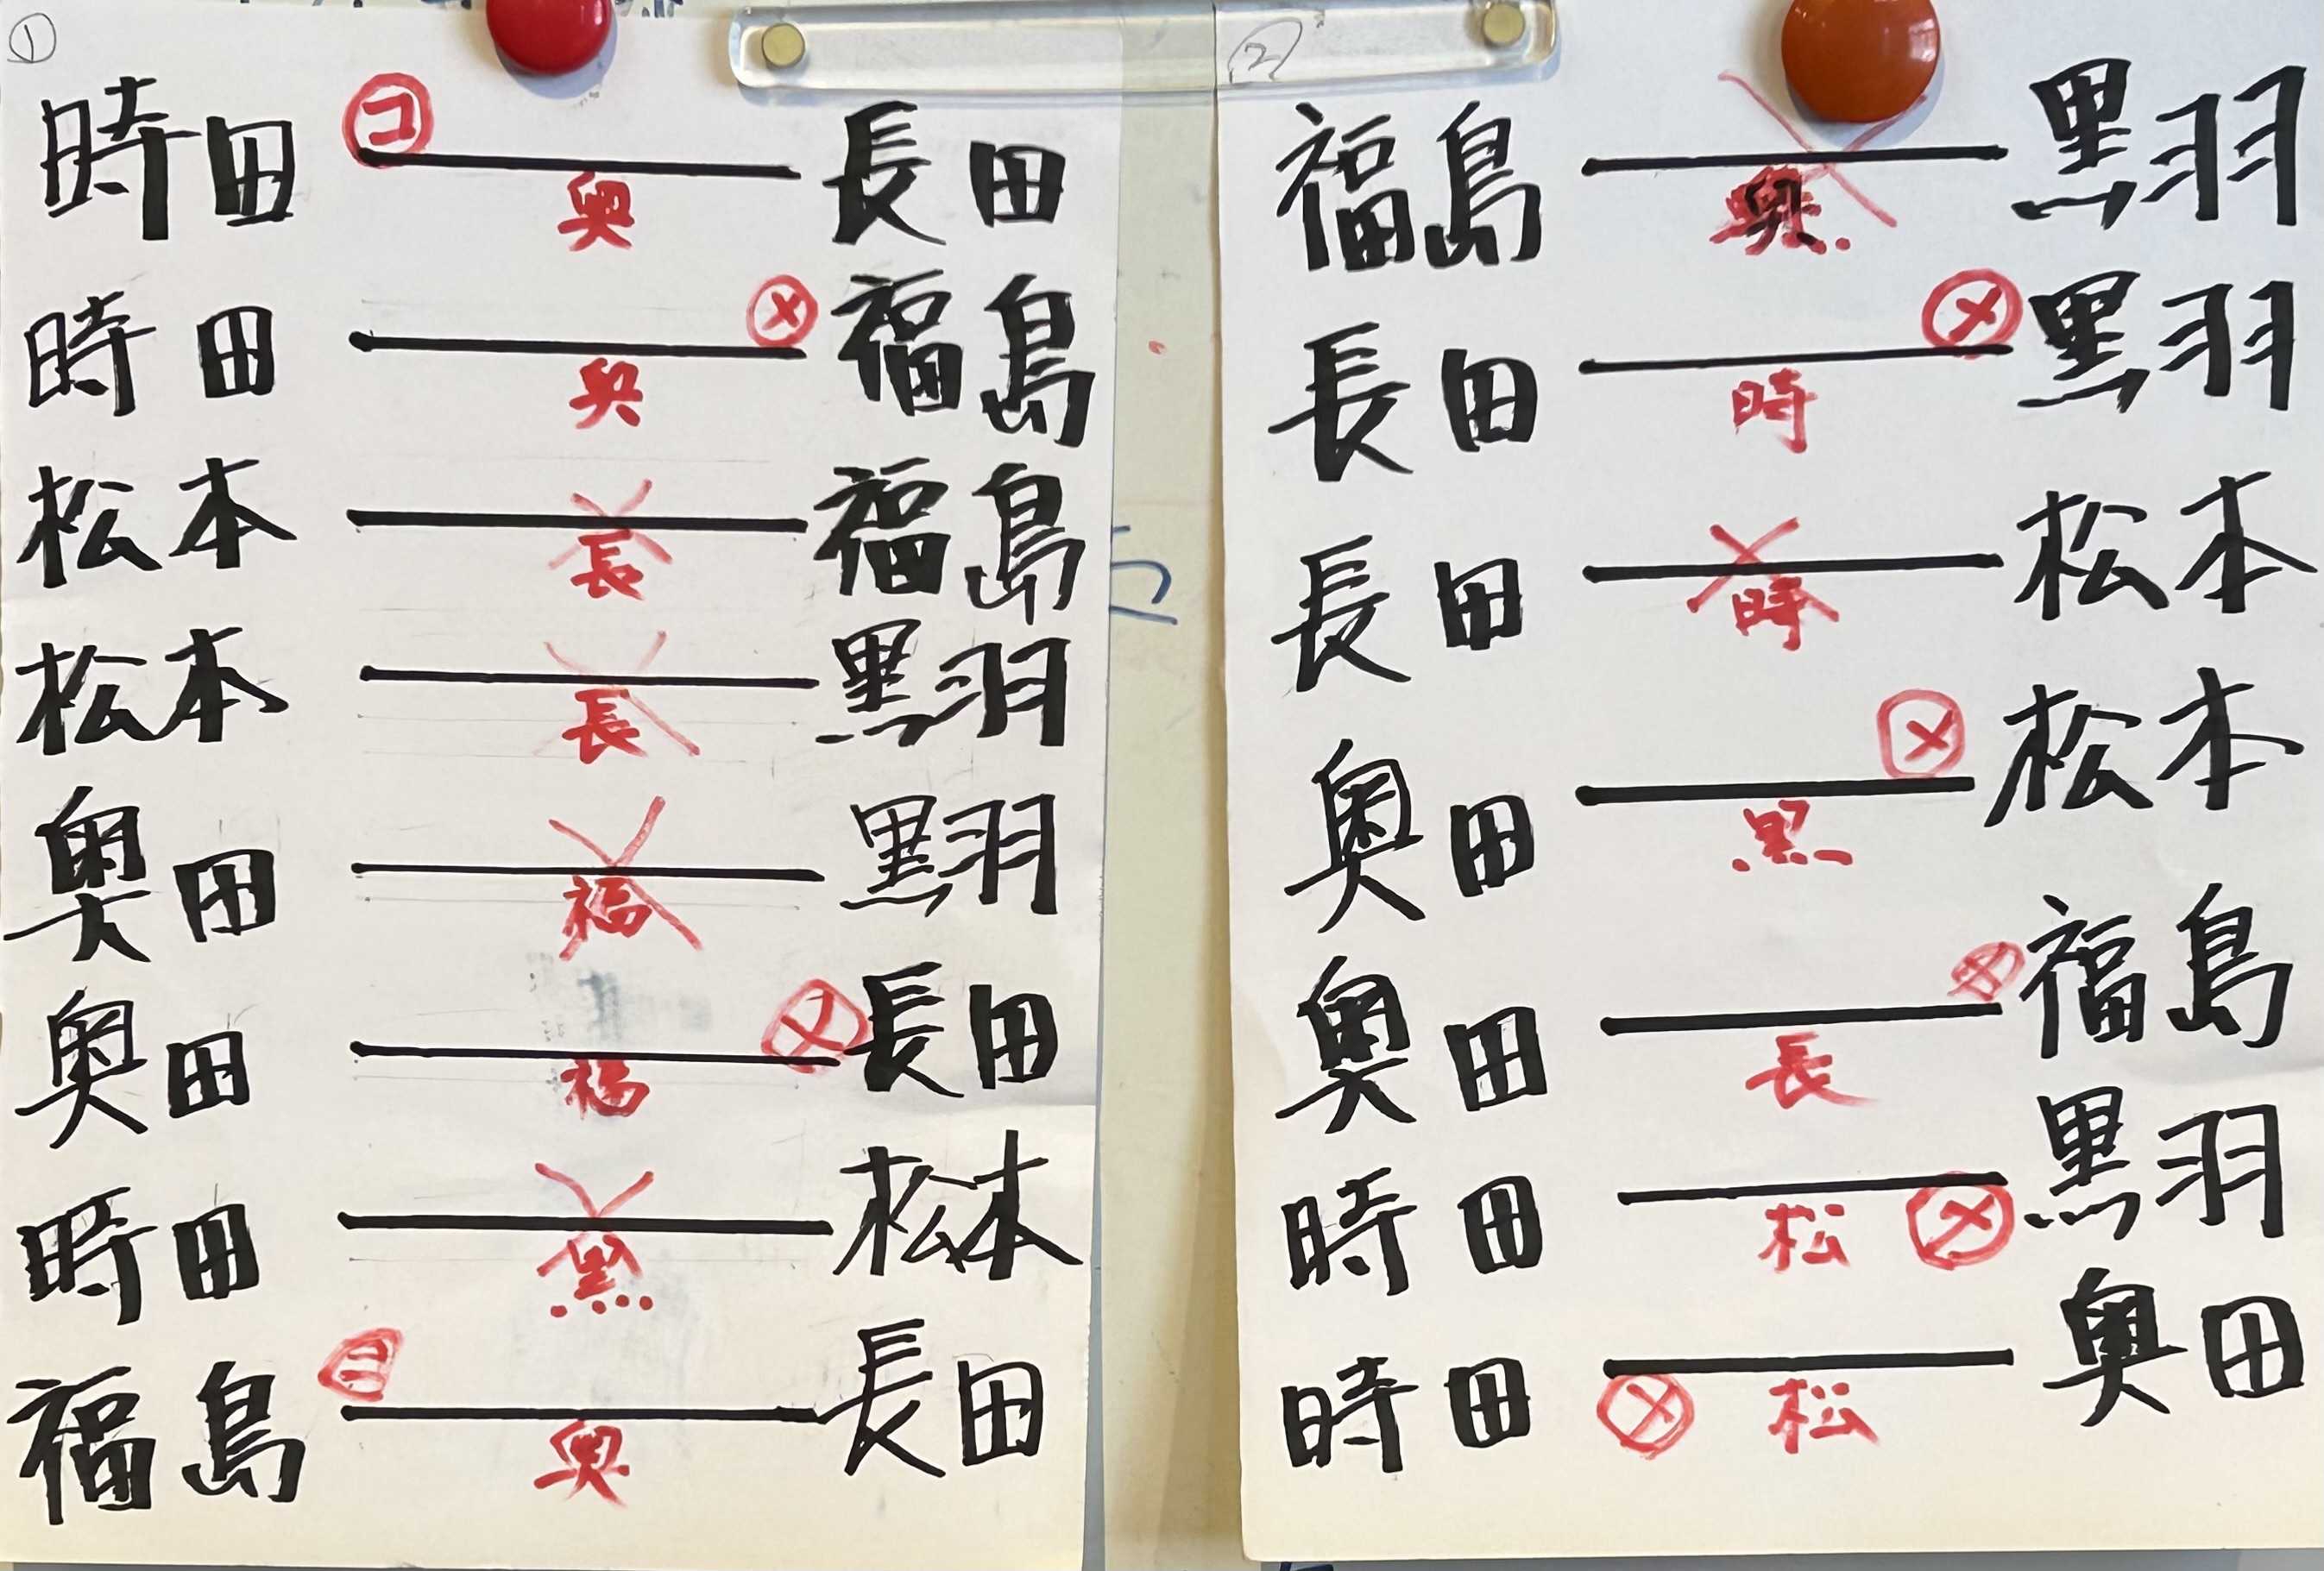 ①
時田 コ 長田
奥
時田 メ 福島
奥
松本 × 福島
長
松本 × 黒羽
長
奥田 × 黒羽
福
奥田 メ 長田
福
時田 × 松本
黒
福島 コ 長田
奥
②
福島 × 黒羽
奥
長田 メ 黒羽
時
長田 × 松本
時
奥田 メ 松本
黒
奥田 メ 福島
長
時田 メ 黒羽
松
時田 メ 奥田
松